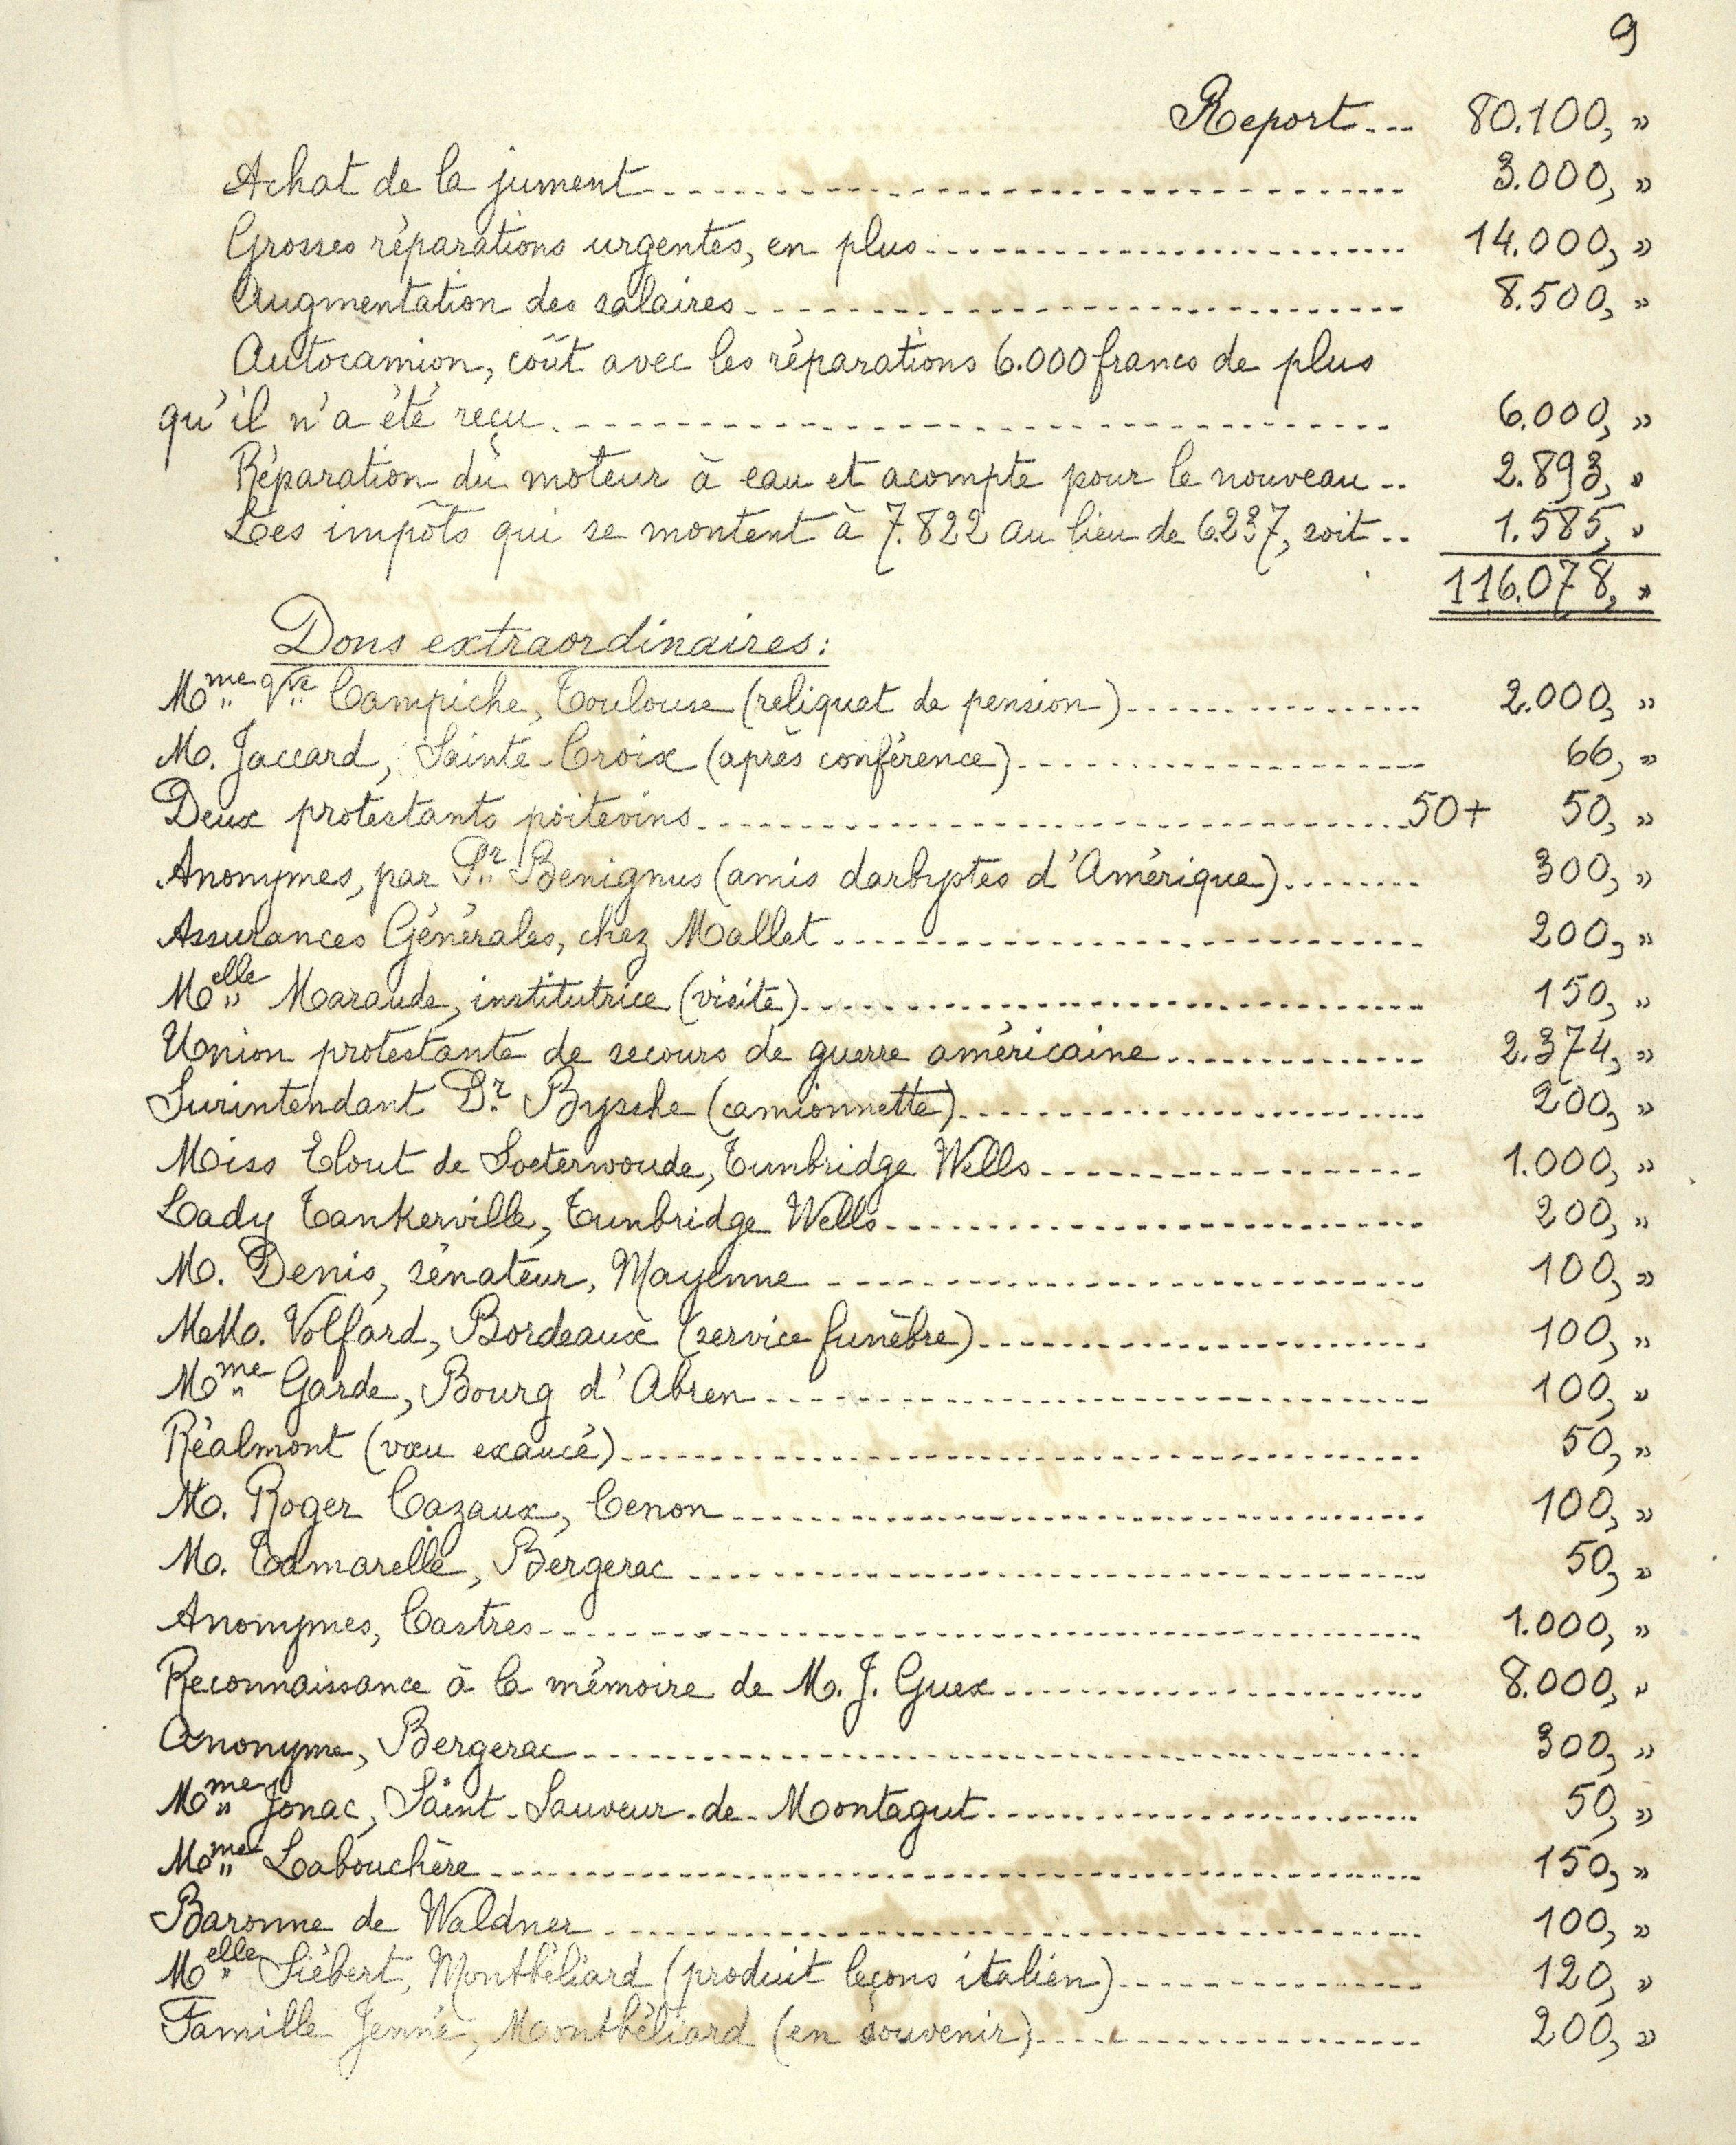 9
Report... 80.100, »
Achat de la jument 3.000, »
Grosses réparations urgentes, en plus 14.000, »
Augmentation des salaires 8.500, »
Autocamion, coût avec les réparations 6.000 francs de plus
qu'il n'a été reçu 6.000, »
Réparation du moteur à eau et acompte pour le nouveau.. 2.893, »
Les impôts qui se montent à 7.822 au lieu de 6.237, soit.. 1.585, »
116.078, »
Dons extraordinaires:
Mme Vve Campiche, Toulouse (reliquat de pension) 2.000, »
M. Jaccard, Sainte-Croix (après conférence) 66, »
Deux protestants poitevins 50+ 50, »
Anonymes, par Dr Benignus (amis darbystes d'Amérique) 300, »
Assurances Générales, chez Mallet 200, »
Melle Maraude, institutrice (visite) 150, »
Union protestante de secours de guerre américaine 2.374, »
Surintendant Dr Bysche (camionnette) 200, »
Miss Elout de Soeterwoude, Tunbridge Wells 1.000, »
Lady Tankerville, Tunbridge Wells 200, »
M. Denis, sénateur, Mayenne 100, »
MM. Volfard, Bordeaux (service funèbre) 100, »
Mme Garde, Bourg d'Abren 100, »
Réalmont (vœu exaucé) 50, »
M. Roger Cazaux, Cenon 100, »
M. Tamarelle, Bergerac 50, »
Anonymes, Castres 1.000, »
Reconnaissance à la mémoire de M. J. Guex 8.000, »
Anonyme, Bergerac 300, »
Mme Jonac, Saint-Sauveur-de-Montagut 50, »
Mme Labouchère 150, »
Baronne de Waldner 100, »
Melle Siébert, Montbéliard (produit leçons italien) 120, »
Famille Jenné, Montbéliard (en souvenir) 200, »